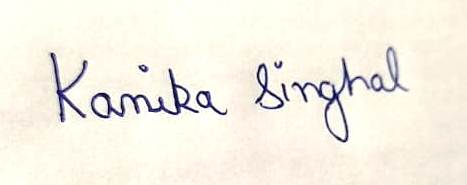 Kanika Singhal